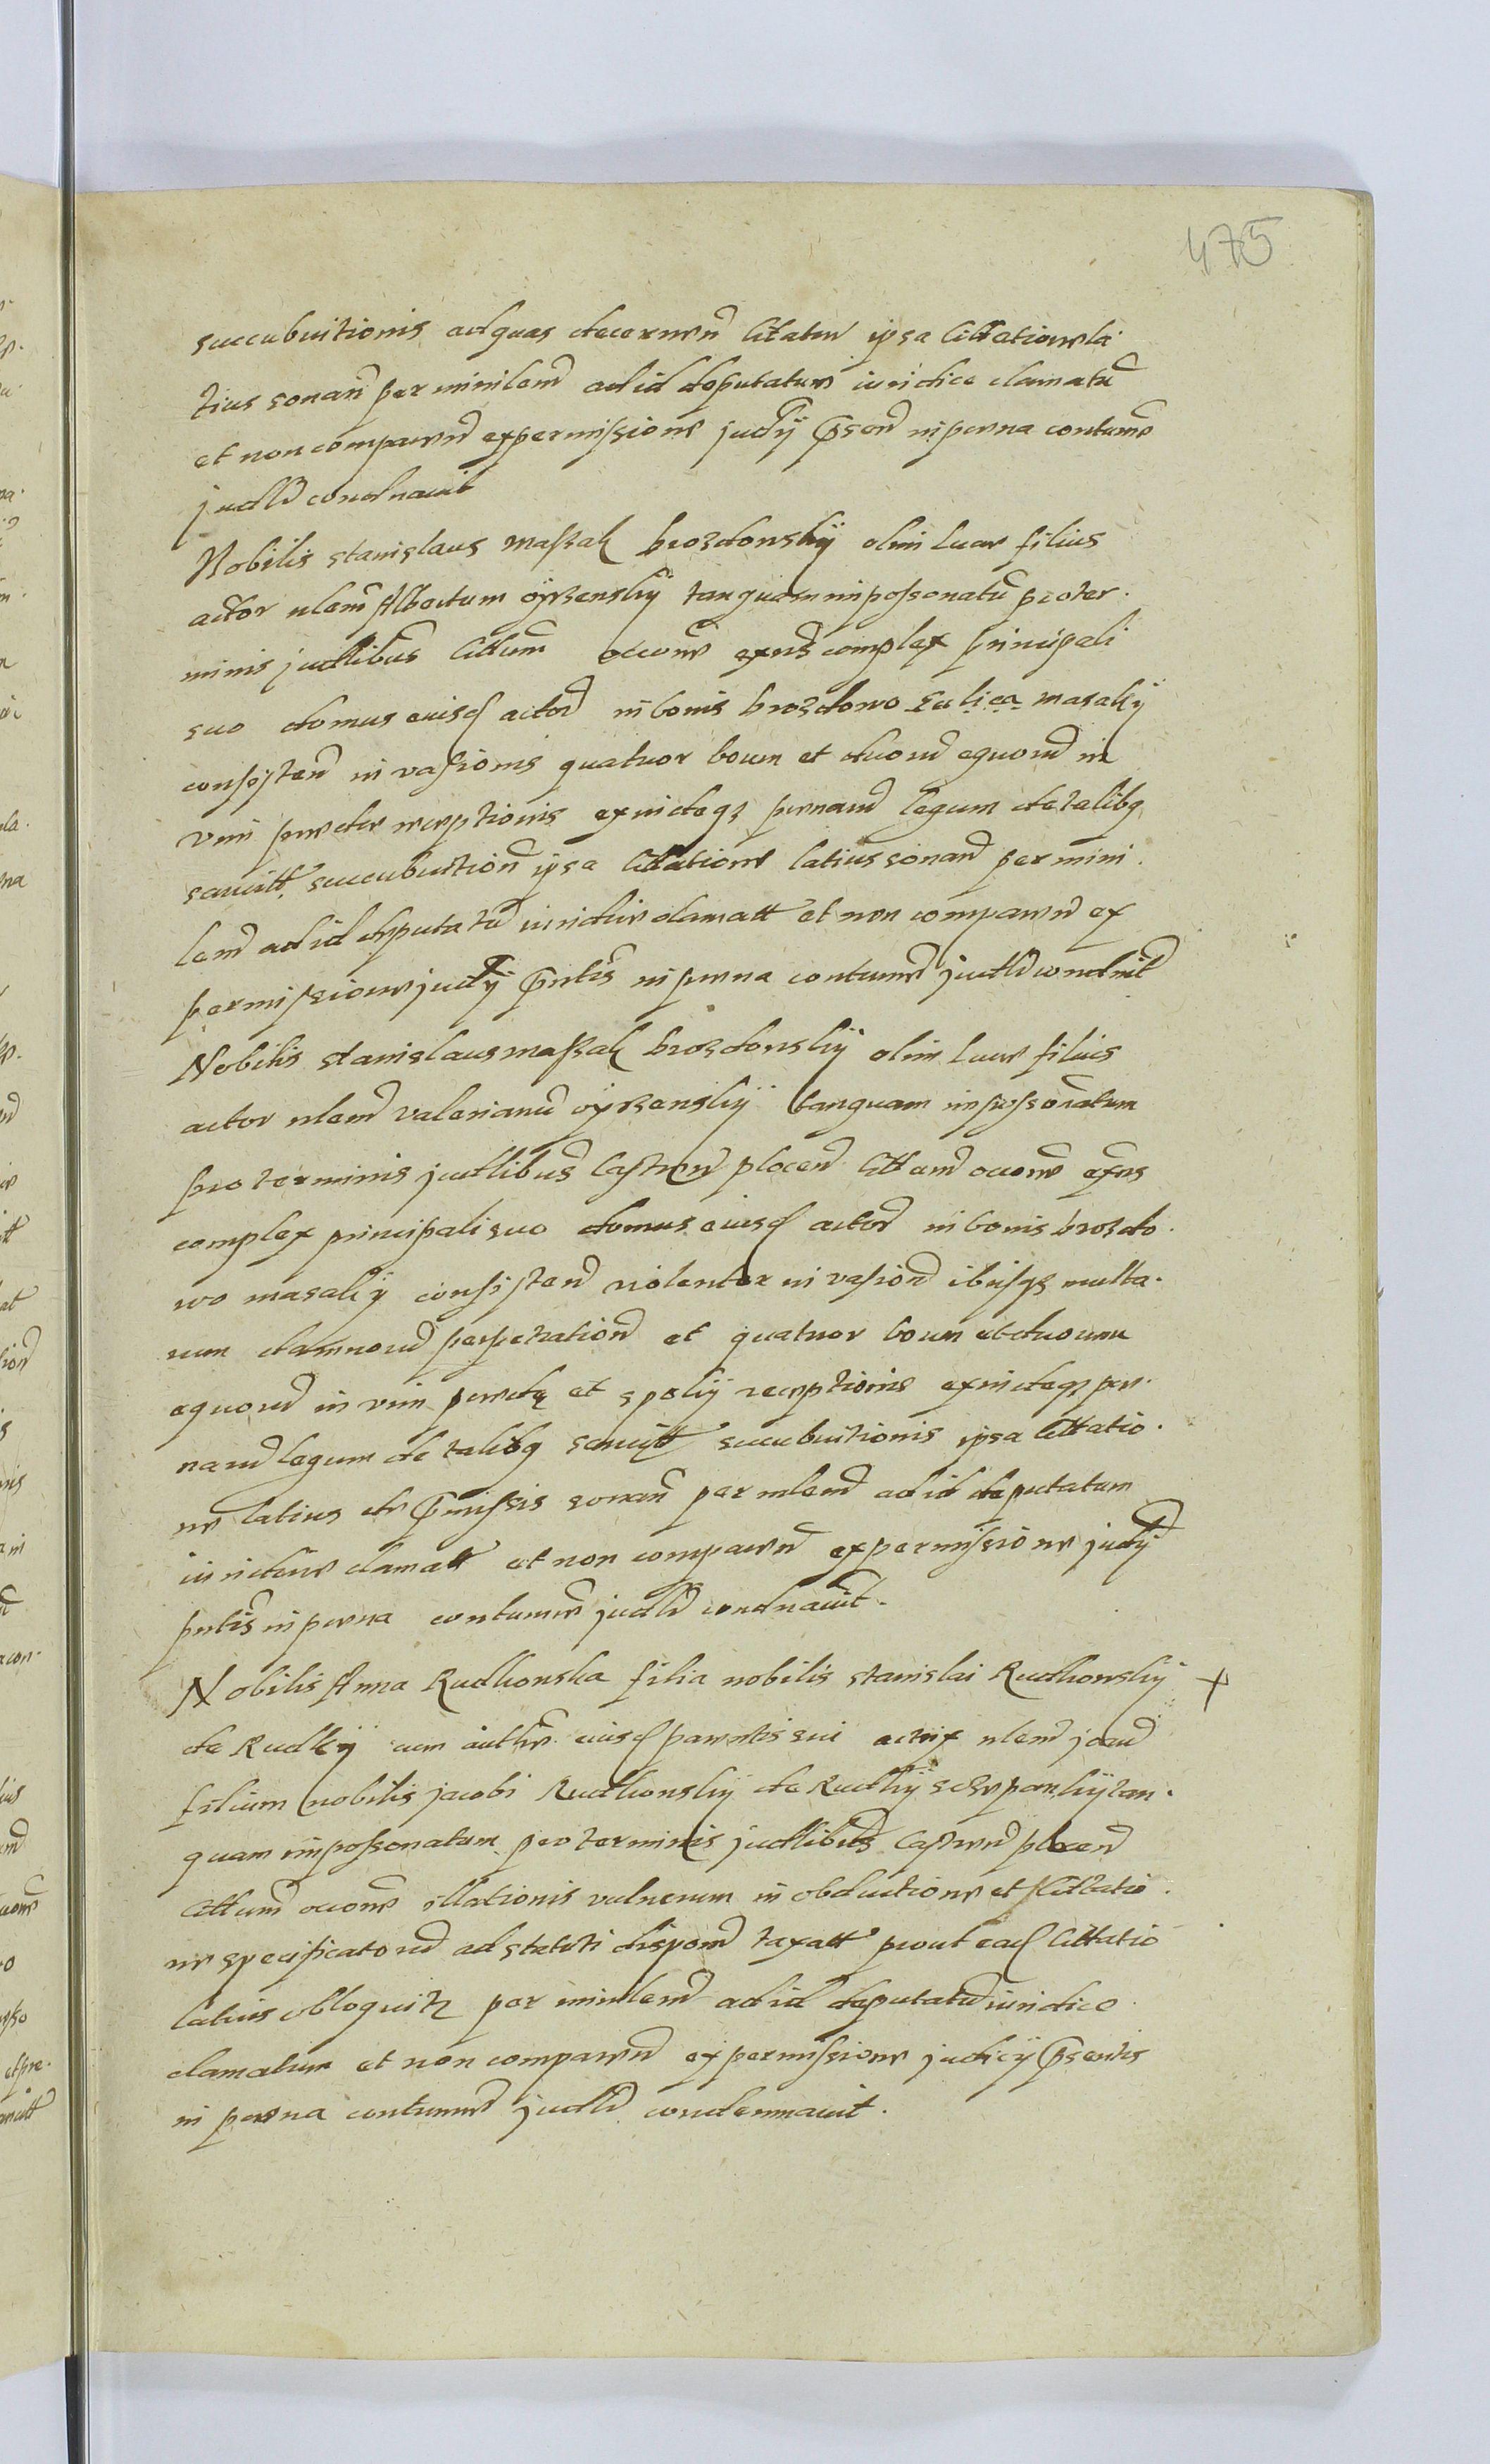 475
succubuitionis ad quas decernen̄ Citatur ipsa Cittatione la
tius sonan̄ per minilem̄ ad id deputatum iuridice clamatū
et non comparen̄ ex permissione judÿ p̄sen̄ in poena contume
judlī condnauit
Nobilis stanislaus Maszak brozdonskÿ olim Lucae filius
actor nlem̄ Albertum oÿrzenskÿ tanquam inpossonatū pro ter.
minis judlibus Cittum̄ occone exn̄s complex principali
suo domus eiusd actor̄ in bonis brozdowo Eulica masakÿ
consisten̄ in vasionis quatuor boum et duoru equoru in
vim praedae receptionis exindeqz poenaru legum de talibq
sancitt. succubuition̄ ipsa Cittatione latius sonan̄ per mini.
lem̄ ad id deputatū iuridice clamatt et non comparen̄ ex
permissione judÿ p̄ntis in poena contume judlī condnit
Nobilis stanislaus Maszak brozdonskÿ olim Lucae filius
actor nlem̄ valerianū oÿrzenskÿ tanquam inpossonatum
pro terminis judlibus Castren̄ plocen̄ Cittum̄ occone exn̄s
complex principali suo domus eiusd actor̄ in bonis brozdo.
wo masakÿ consisten̄ violenter in vasion̄ ibusqz multa.
rum damnoru perpetration̄ et quatuor boum et duorum
equoru in vim praedae et spolÿ receptionis exindeqz poe.
naru legum de talibq sancitt succubuitionis ipsa Cittatio.
ne latius de p̄missis sonan̄ per nlem̄ ad id deputatum
iuridice clamatt et non comparen̄ ex permissione judÿ
pntis in poena contume judlī condnauit.
Nobilis Anna Rudkonska filia nobilis stanislai Rudkonskÿ +
de Rudkÿ cum autlite eiusd parentis sui actrix nlem̄ joan̄
filium nobilis jacobi Rudkonskÿ de Rudkÿ tan.
quam inpossonatum pro terminis judlibus Castren̄ plocen̄
Cittum̄ occone illationis vulnerum in obductione et Cittatio.
ne specificatoru ad statuti dispon̄ taxatt prout ead Cittatio
latius obloquitz per minlem̄ ad id deputatū iuridice
clamatum et non comparen̄ ex permissione judicÿ p̄sentis
in poena contume judlī condemnauit.